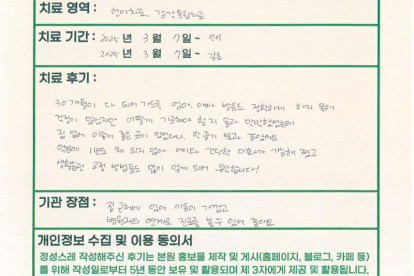 치료 영역 : 언어치료, 감각통합치료
치료 기간 : 2025 년 3 월 7 일 ~ 언어
2025 년 3 월 7 일 ~ 감통
치료 후기 :
30개월이 다 되어가도록 엄마, 아빠 발음도 정확하게 하지 못해
걱정이 많았지만 어떻게 기관해야 할지 몰라 막막했었는데
집 앞에 이렇게 좋은 곳이 있었다니,
덕분에 1년도 채 되지 않아 아이와 간단한 대화가 가능해 졌고
생활습관 교정 방법들도 많이 알게 되어 감사합니다!
기관 장점 : 집 근처에 있어 이동이 가깝고
병원과의 연계로 진료를 볼 수 있어 좋아요
개인정보 수집 및 이용 동의서
정성스레 작성해주신 후기는 본원 홍보물 제작 및 게시(홈페이지, 블로그, 카페 등)
를 위해 작성일로부터 5년 동안 보유 및 활용되며 제 3자에게 제공 및 활용됩니다.